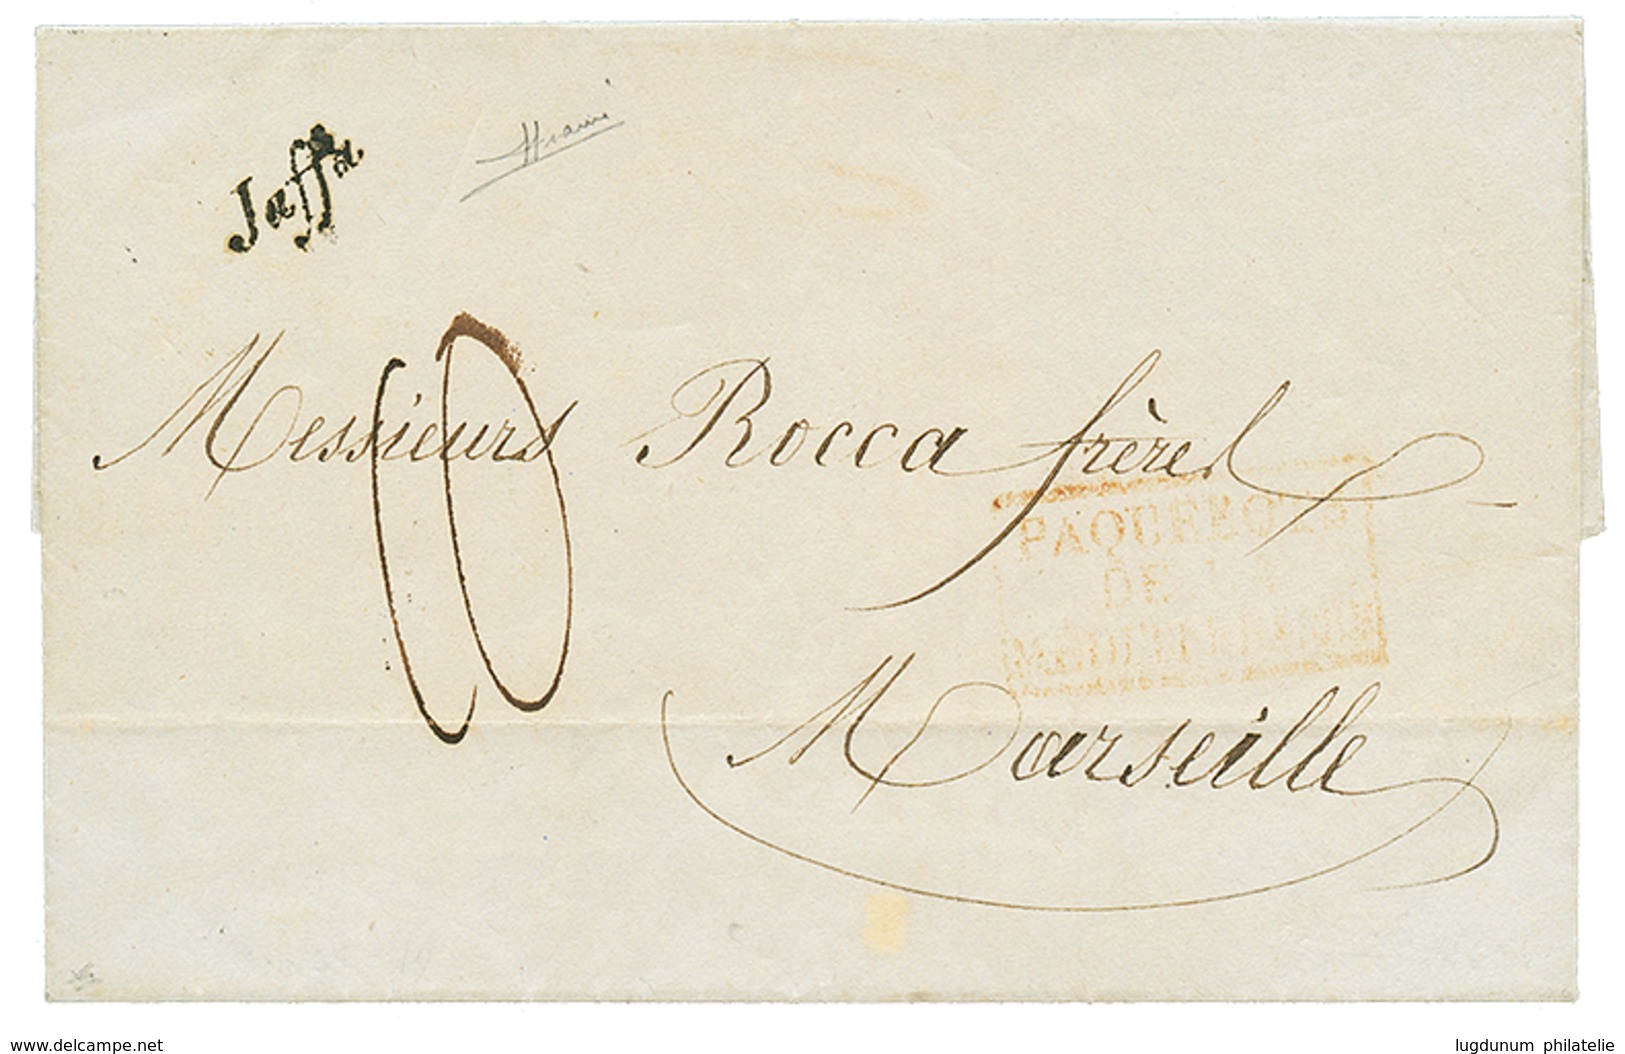 Jaffa
10
Messieurs Rocca frères
PAQUEBOTS
DE LA
MEDITERRANEE
Marseille
www.delcampe.net
lugdunum philatelie